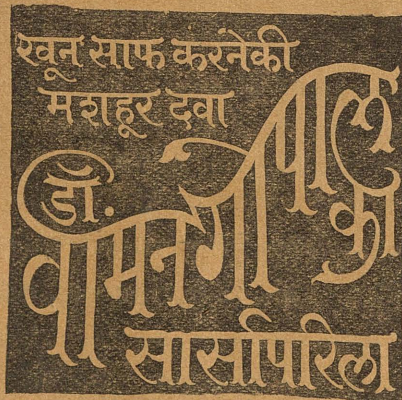 खून साफ करनेकी
मशहूर दवा
डॉ.
वामनगोपाल
का
सार्सापरिला